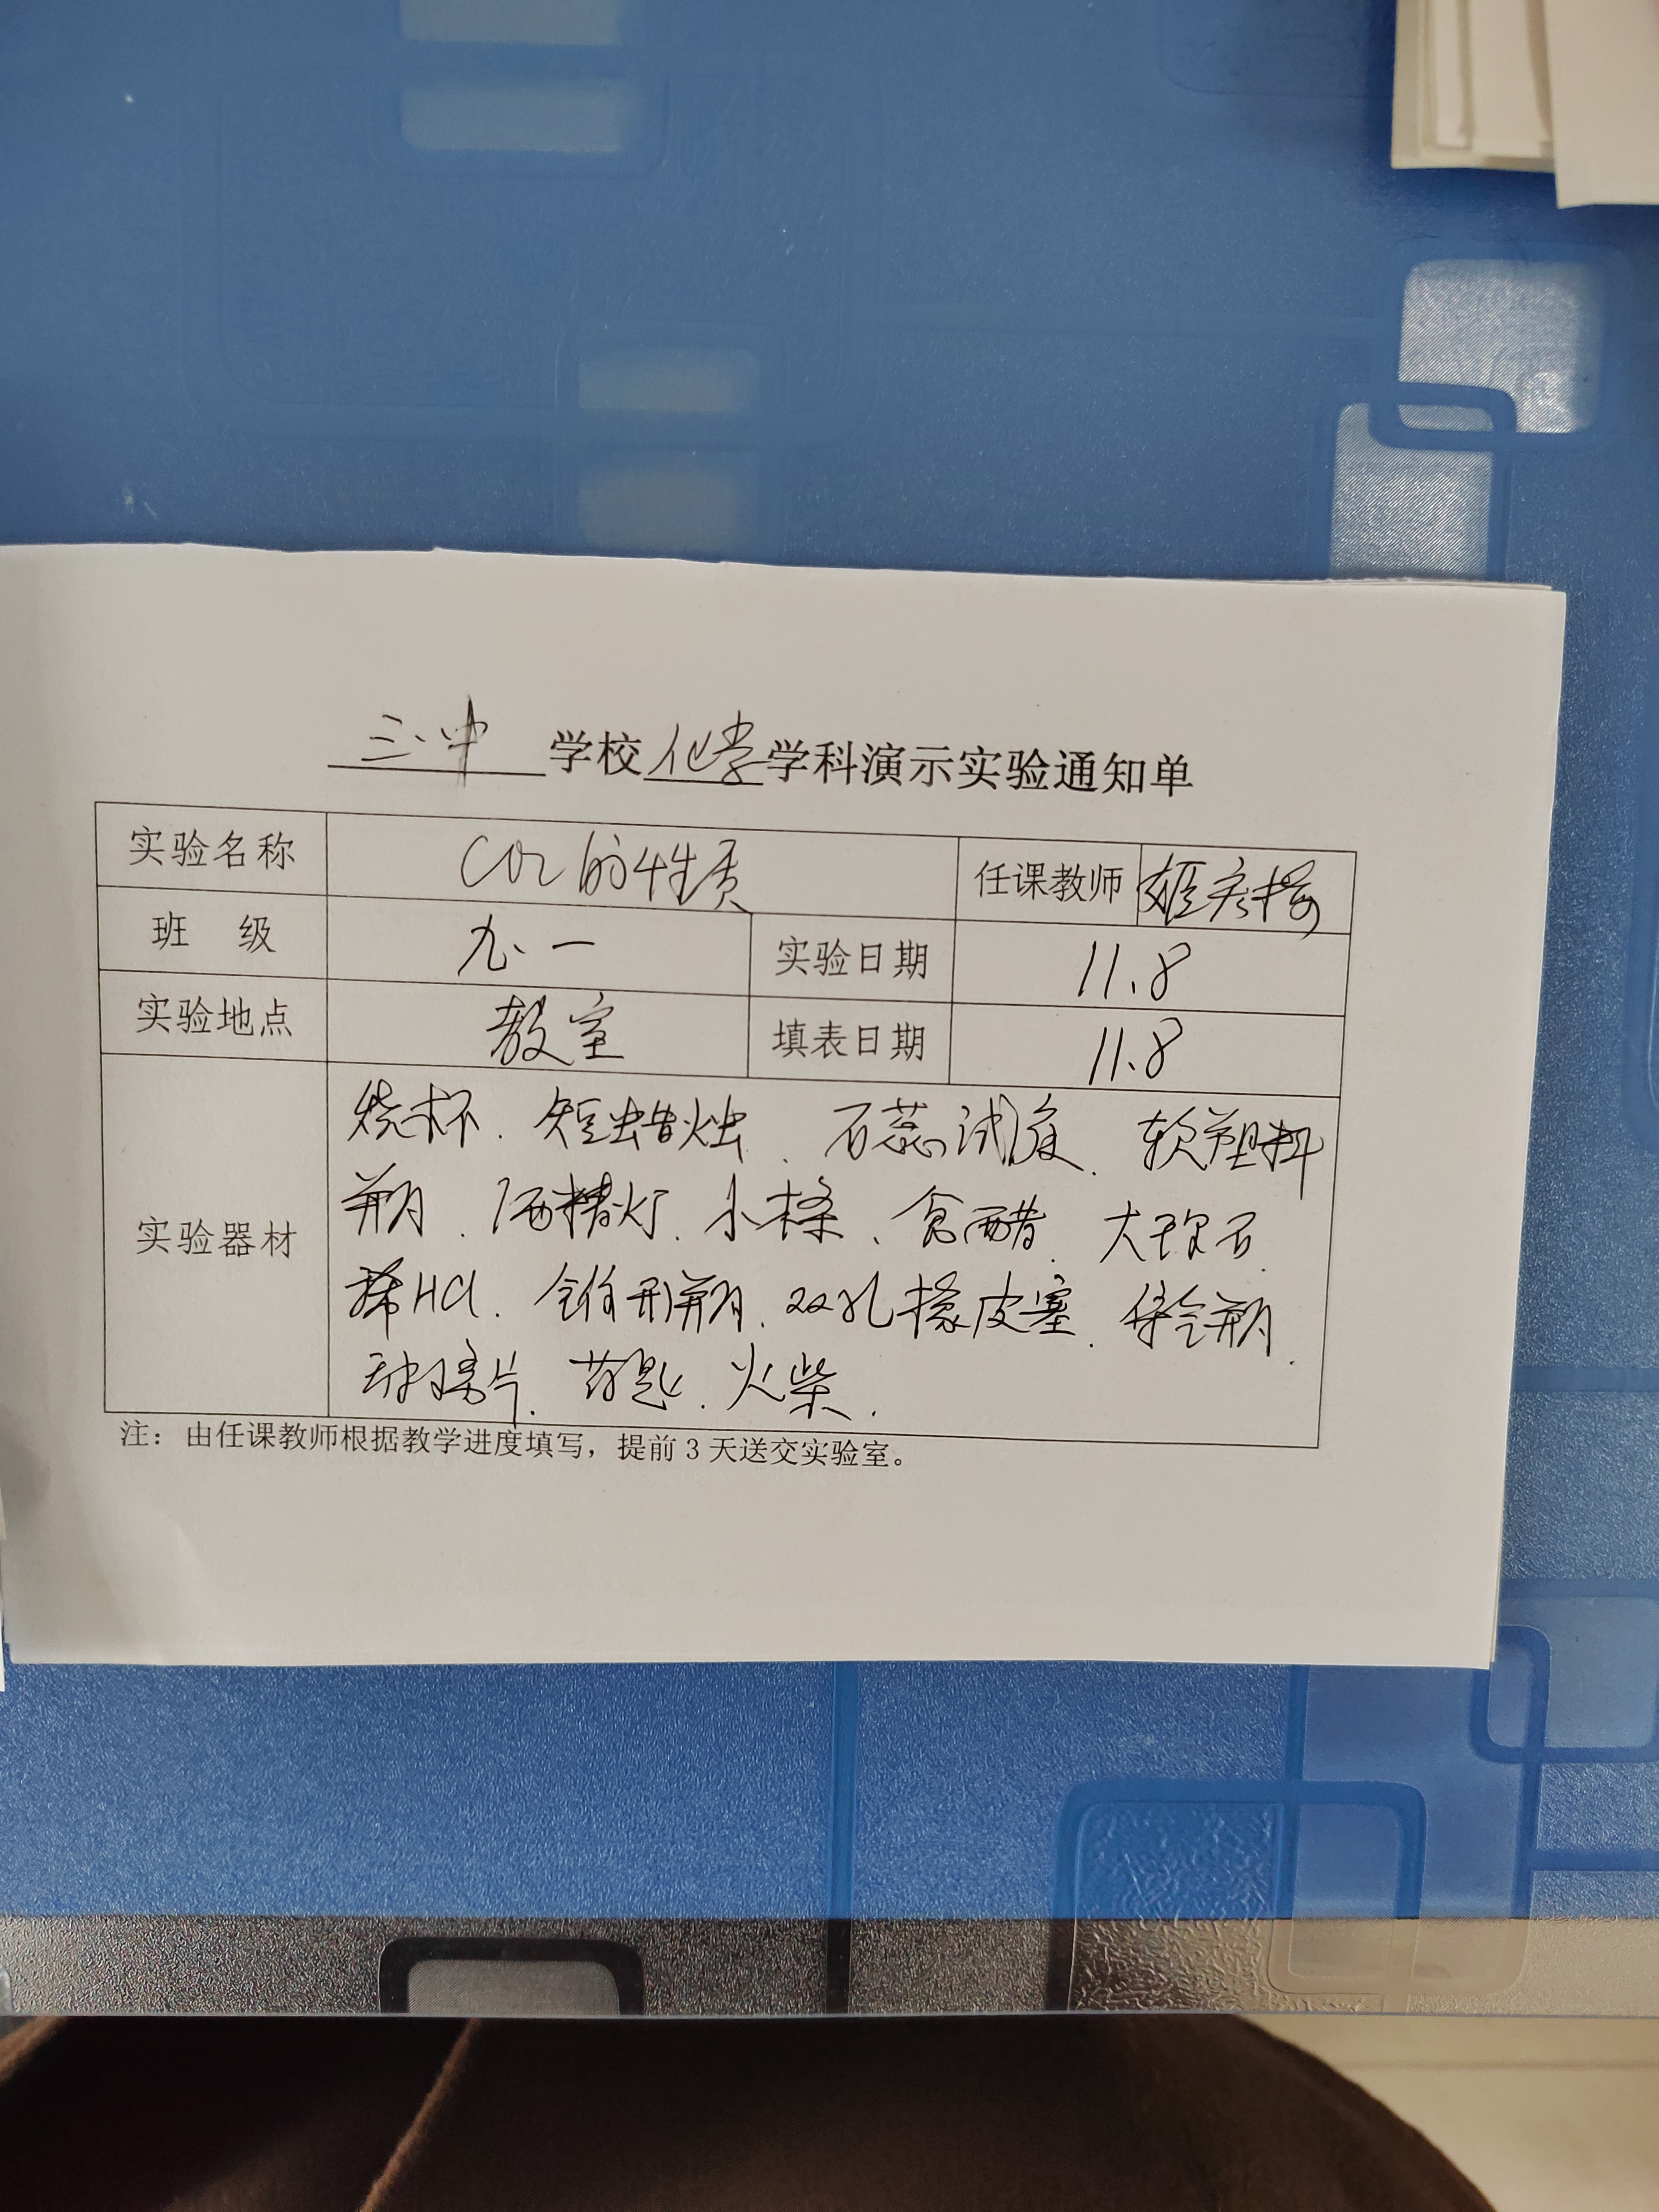 三中 学校 化学 学科演示实验通知单
实验名称 CO2的性质 任课教师 姬
班 级 九.一 实验日期 11.8
实验地点 教室 填表日期 11.8
实验器材
烧杯、短蜡烛、石蕊试液、软塑料
瓶、酒精灯、小木条、食醋、大理石
稀HCl、锥形瓶、双孔橡皮塞、集气瓶、
玻璃片、药匙、火柴.
注：由任课教师根据教学进度填写，提前3天送交实验室。